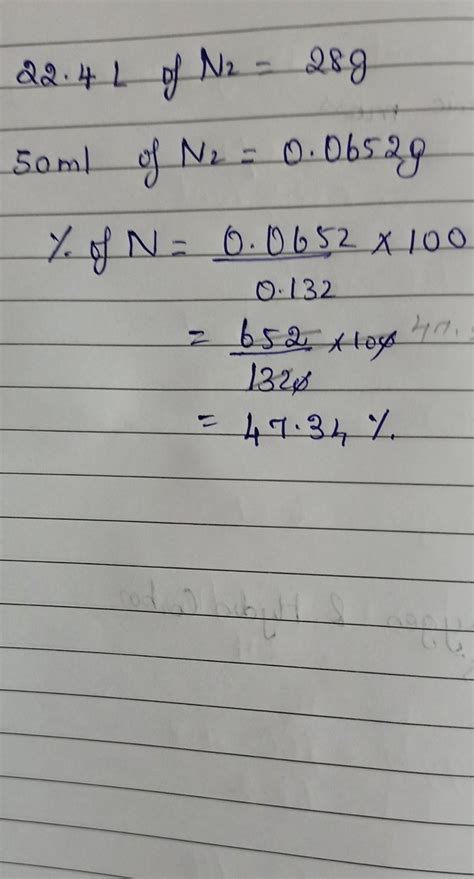 22.4 L of N2 = 28g
50ml of N2 = 0.0652g
% of N = 0.0652 x 100
0.132
= 652 x 100
1320
= 47.34 %.